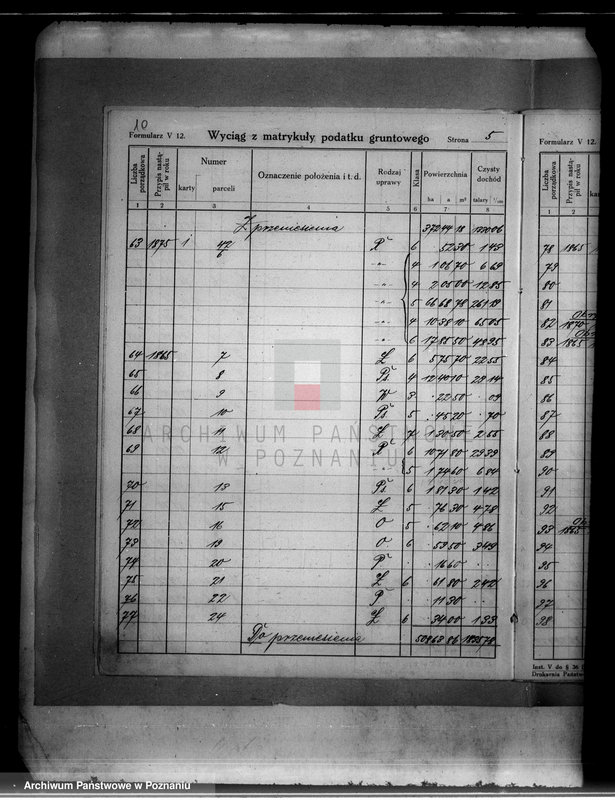 10
Formularz V 12. Wyciąg z matrykuły podatku gruntowego Strona 5
Formularz V 12.
Liczba porządkowa Przypis nastąpił w roku Numer Oznaczenie położenia i t. d. Rodzaj uprawy Klasa Powierzchnia Czysty dochód
karty parceli ha a m² talary ¹/₁₀₀
1 2 3 4 5 6 7 8
Z przeniesienia 372 44 18
63 1875 1 47/6 R 6 52 30 1 43
" 4 1 06 70 6 69
" 4 2 05 00 12 85
" 5 66 68 78 261 19
" 6 10 38 10 65 05
" 6 17 85 50 48 95
64 1865 7 Ł 6 5 75 70 22 55
65 8 Ps 4 12 40 10 29 14
66 9 W 3 . 22 50 . 09
67 10 Ps 5 . 45 20 . 70
68 11 Ł 7 1 30 50 2 55
69 12 R 6 10 71 80 29 39
" 5 1 74 60 6 84
70 13 Ps 6 1 81 30 1 42
71 15 Ł 5 . 76 30 4 78
72 16 O 5 . 62 10 4 86
73 19 O 6 . 59 50 3 49
74 20 P . . 16 60 . .
75 21 Ł 6 . 61 80 2 42
76 22 P . . 11 30 . .
77 24 Ł 6 . 34 00 1 33
Do przeniesienia 508 63 86 1835 78
Liczba porządkowa Przypis nastąpił w roku
1 2
78 1865
79
80
81
82 1870
83 1865
84
85
86
87
88
89
90
91
92
93 1865
94
95
96
97
98
Inst. V do § 36
Drukarnia Państw
ARCHIWUM PAŃSTWOWE
W POZNANIU
Archiwum Państwowe w Poznaniu